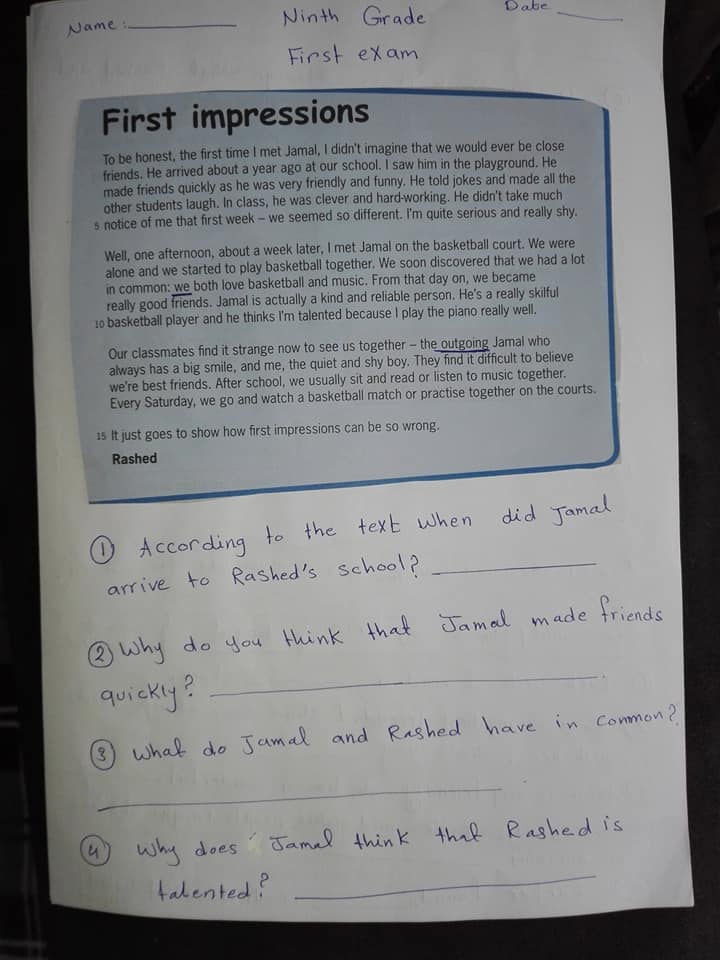 Name: Ninth Grade Date
First exam
First impressions
To be honest, the first time I met Jamal, I didn't imagine that we would ever be close
friends. He arrived about a year ago at our school. I saw him in the playground. He
made friends quickly as he was very friendly and funny. He told jokes and made all the
other students laugh. In class, he was clever and hard-working. He didn't take much
5 notice of me that first week – we seemed so different. I'm quite serious and really shy.
Well, one afternoon, about a week later, I met Jamal on the basketball court. We were
alone and we started to play basketball together. We soon discovered that we had a lot
in common: we both love basketball and music. From that day on, we became
really good friends. Jamal is actually a kind and reliable person. He's a really skilful
10 basketball player and he thinks I'm talented because I play the piano really well.
Our classmates find it strange now to see us together – the outgoing Jamal who
always has a big smile, and me, the quiet and shy boy. They find it difficult to believe
we're best friends. After school, we usually sit and read or listen to music together.
Every Saturday, we go and watch a basketball match or practise together on the courts.
15 It just goes to show how first impressions can be so wrong.
Rashed
① According to the text when did Jamal
arrive to Rashed's school?
② Why do you think that Jamal made friends
quickly?
③ What do Jamal and Rashed have in common?
④ Why does Jamal think that Rashed is
talented?